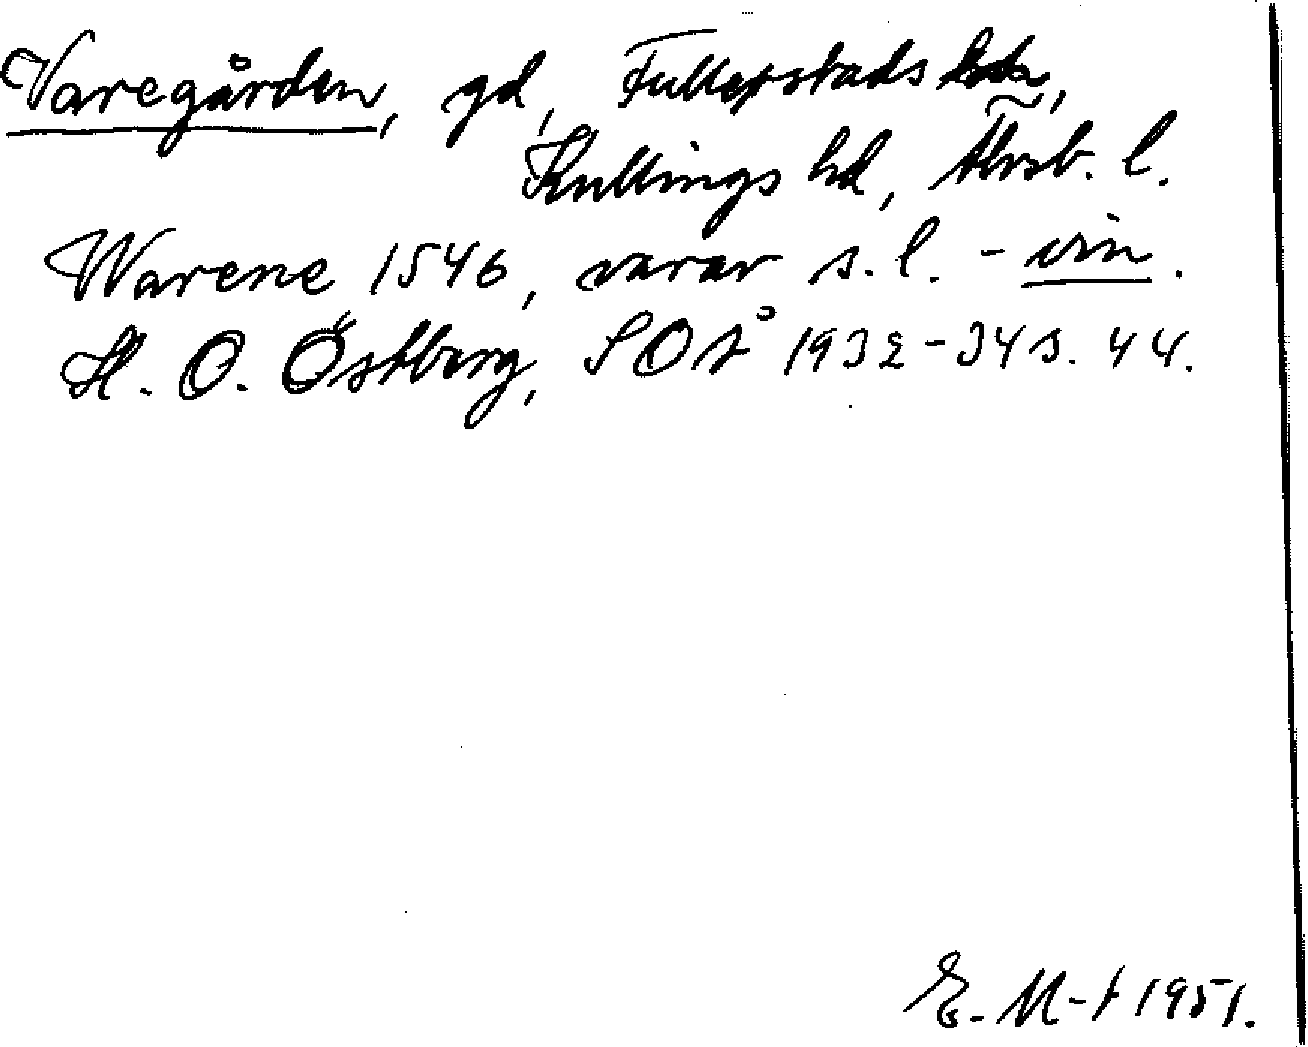 Varegården, gd, Fullestads sn,
Kullings hd, Älvsb. l.
Warene 1546, varav s. l. - vin.
H. O. Östberg, SOÅ 1932-34 s. 44.
E. M-t 1951.